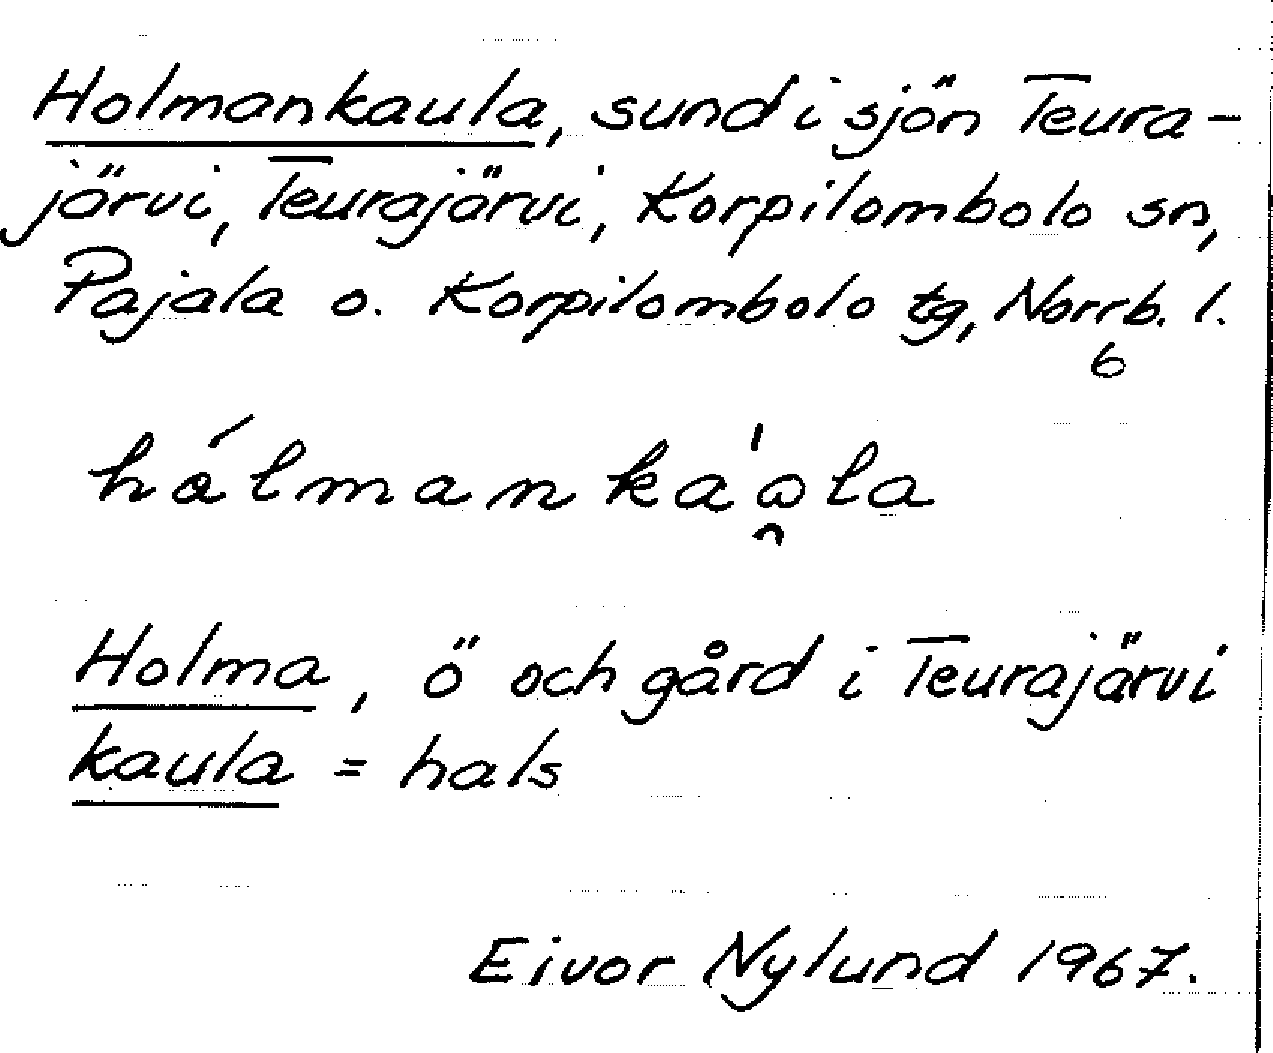 Holmankaula, sund i sjön Teura-
järvi, Teurajärvi, Korpilombolo sn,
Pajala o. Korpilombolo tg, Norrb. l.
6
hålmankaωla
Holma, ö och gård i Teurajärvi
kaula = hals
Eivor Nylund 1967.